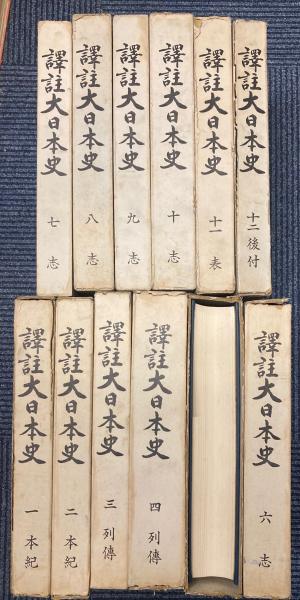 譯註大日本史 七 志
譯註大日本史 八 志
譯註大日本史 九 志
譯註大日本史 十 志
譯註大日本史 十一 表
譯註大日本史 十二 後付
譯註大日本史 一 本紀
譯註大日本史 二 本紀
譯註大日本史 三 列傳
譯註大日本史 四 列傳
譯註大日本史 六 志